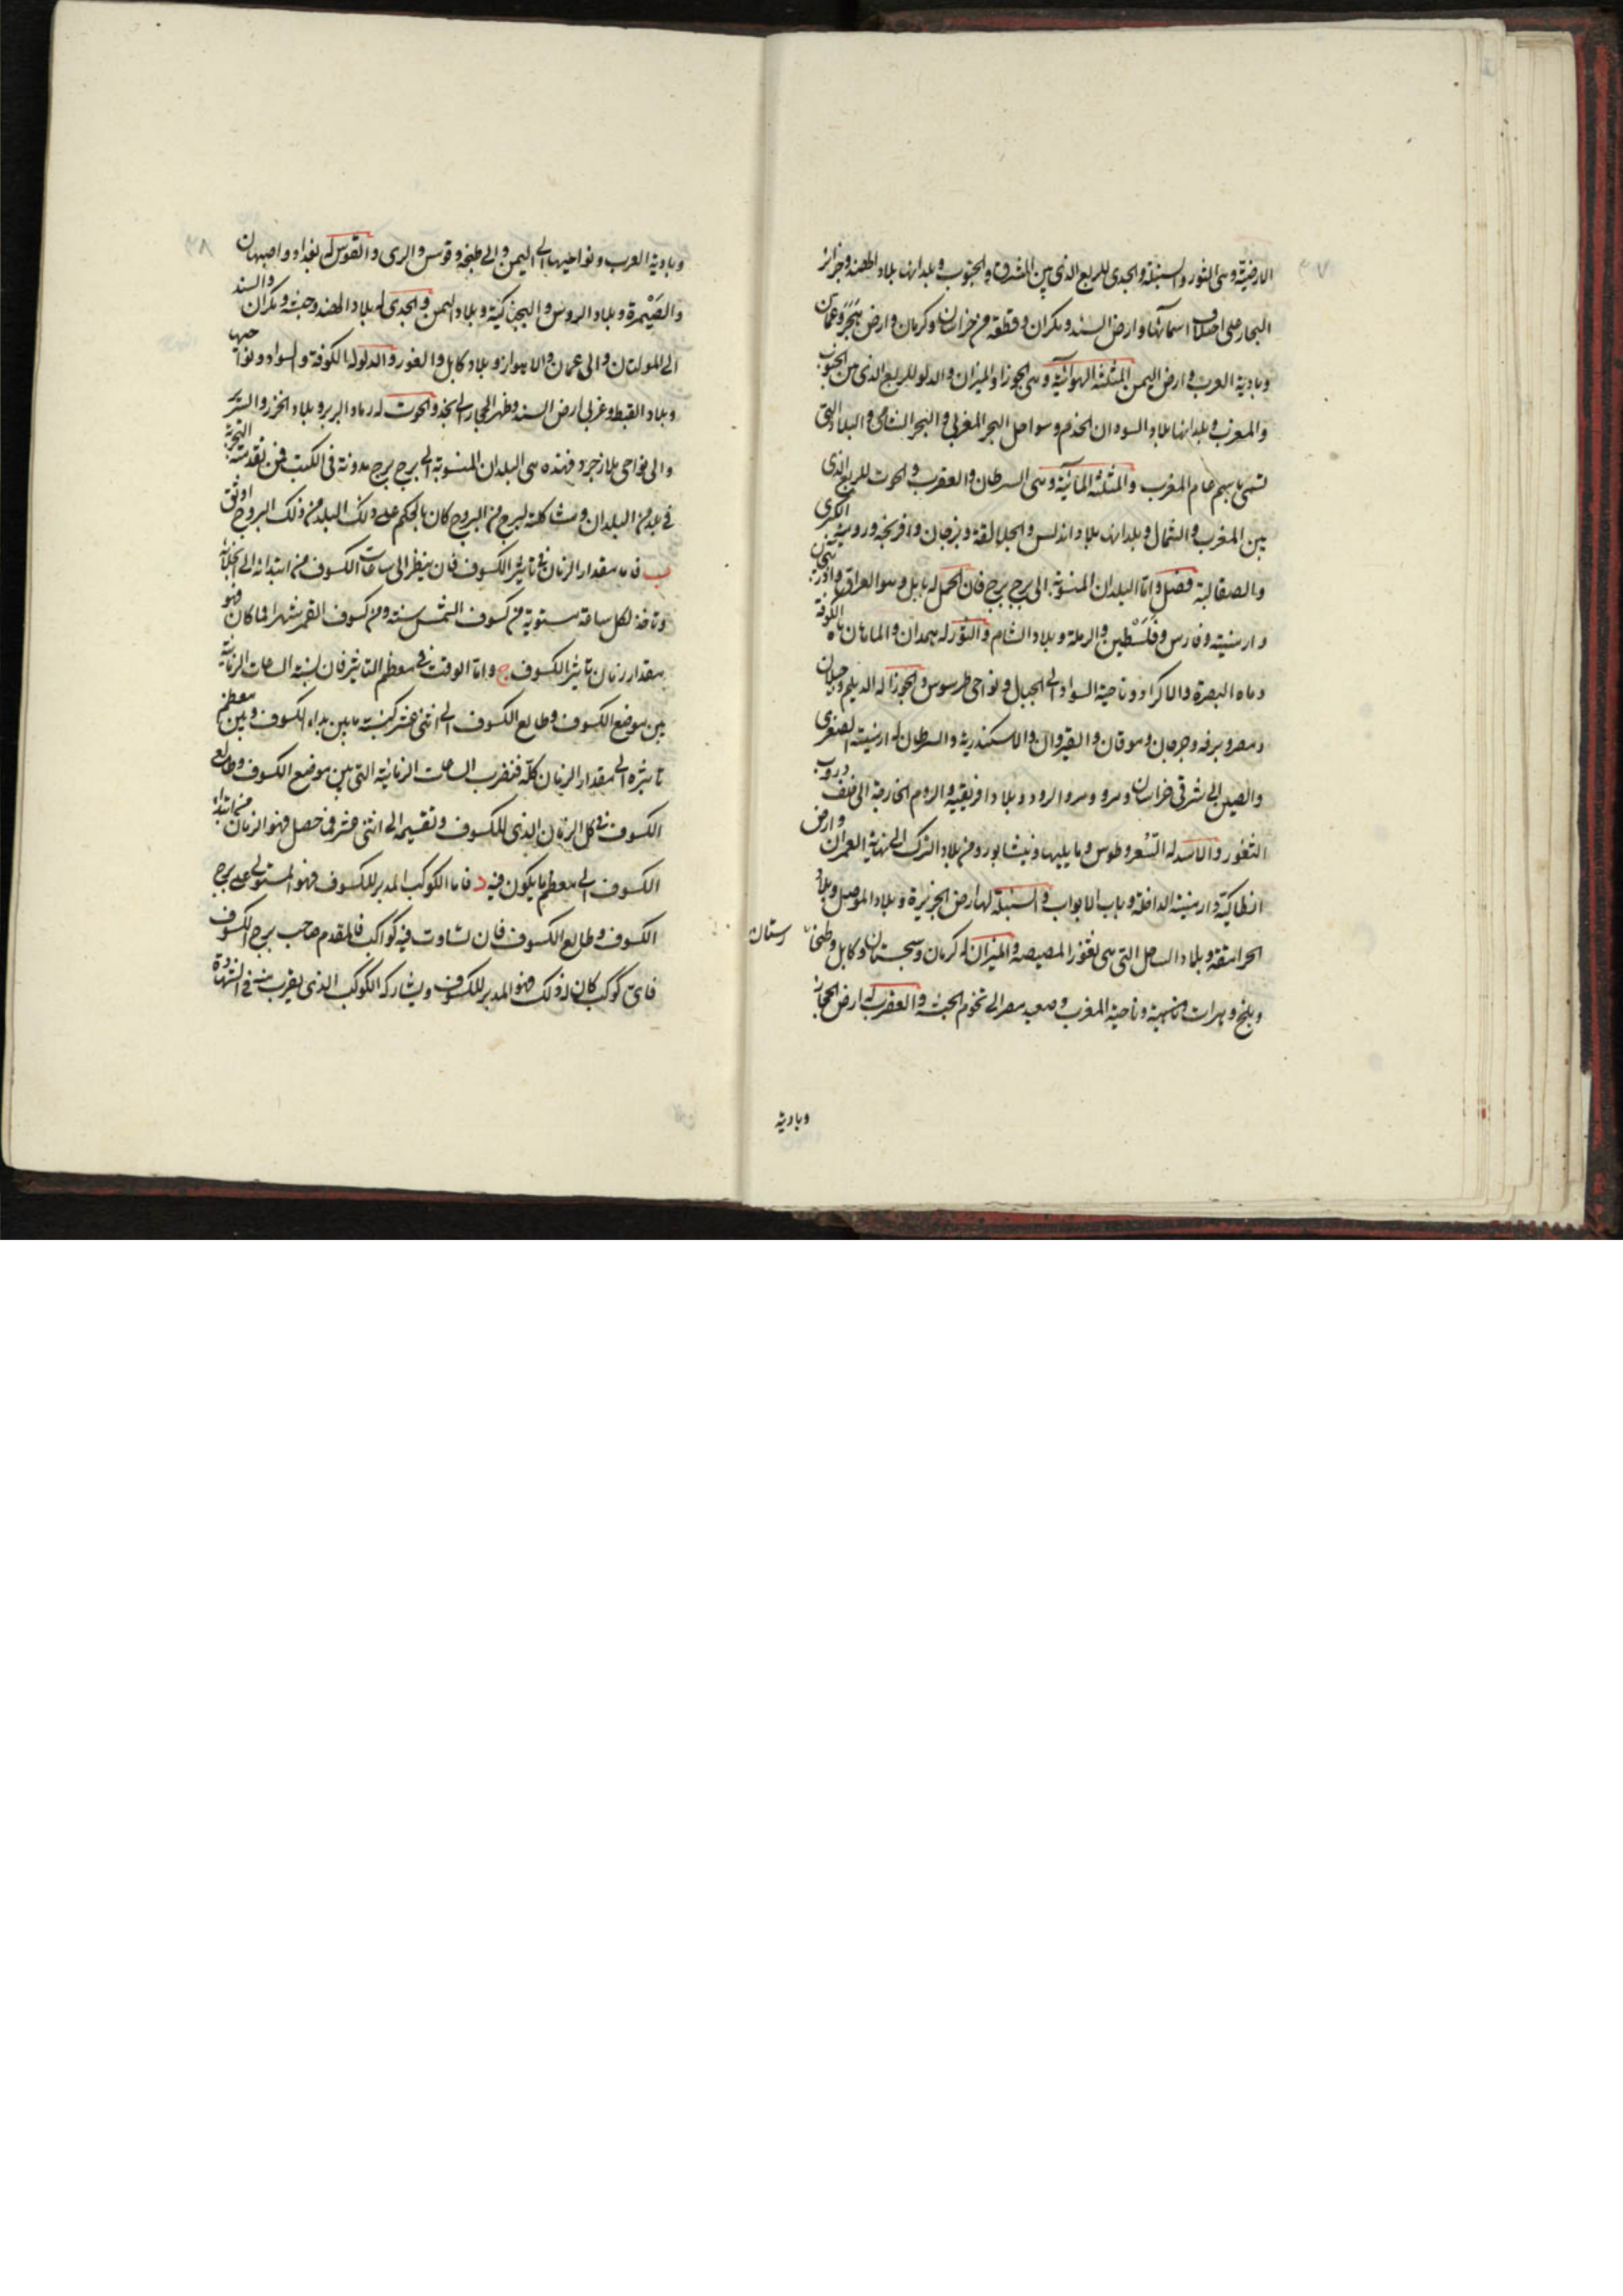 ٣٧
الارضيّة وهى الثور والسنبلة والجدى للربع الذى بين المشرق والجنوب وبلدانها بلاد الهند وجزائر
البحار على اختلاف اسمائها وارض السند ومكران وقطعة من خراسان وكرمان وارض هَجَرَ وعمان
وبادية العرب وارض اليمن المثلثه الهوائية وهى الجوزا والميزان والدلو للربع الذى من الجنوب
والمغرب وبلدانها بلاد السودان الخدم وسواحل البحر المغربى والبحر الشامى والبلاد التى
تسمى باسم عام المغرب والمثلثه المائية وهى السرطان والعقرب والحوت للربع الذى
بين المغرب والشمال وبلدانها بلاد اندلس والجلالقة وبرجان وافرنجه وروميه الكبرى
والصقالبة فصل وامّا البلدان المنسوبة الى برج برج فان الحمل له بابل وهو العراق واذربيجان
وارمنيته وفارس وفلسطين والرملة وبلاد الشام والثور له همدان والماهان ماه الكوفة
وماه البصرة والاكراد وناحية السواد الى الجبال ونواحى طرسوس والجوزا له الديلم وجيلان
ومصر وبرقه وجرجان وموقان والقيروان والاسكندرية والسرطان له ارمنيته الصغرى
والصين الى شرقى خراسان ومرو ومرو الرود وبلاد افريقيه والروم الخارجة الى خلف دروب
الثغور والاسد له السغر وطوس وما يليها ونيشابور ومن بلاد الترك الى نهاية العمران وارض
انطاكيّة وارمنيته الداخلة وباب الابواب والسنبلة لها ارض الجزيرة وبلاد الموصل وبلاد
الجرامقة وبلاد الساحل التى هى ثغور المصيصه والميزان له كرمان وسجستان وكابل وطخا رستان
وبلخ وهرات وناحية المغرب وصعيد مصر الى تخوم الحبشه والعقرب له ارض الحجاز
وبادية
٣٨
وبادية العرب ونواحيها الى اليمن والى طنجه وقومس والرى والقوس له بغداد واصبهان
والصَّيْمرة وبلاد الروس والبجناكية وبلاد اليمن والجدى له بلاد الهند وحبشه ومكران والسند
الى المولتان والى عمان والاهواز وبلاد كابل والغور والدلو له الكوفة والسواد ونواحيها
وبلاد القبط وغربى ارض السند وظهر الحجاز الى نجد والحوت له رماد البربر وبلاد الخزر والسرير
والى نواحى بلازجرد فهذه هى البلدان المنسوبة الى برج برج مدونة فى الكتب فمن تقدمت التجربة
فى بلد من البلدان ومشاكلته لبرج من البروج كان بالحكم على ذلك البلد من ذلك البروج اوثق
ب فاما مقدار الزمان فى تاثير الكسوف فان ينظر الى ساعات الكسوف من ابتدائه الى انجلائه
وتاخذ لكل ساعة مستوية من كسوف الشمس سنة ومن كسوف القمر شهرا فما كان فهو
مقدار زمان تاثير الكسوف ج وامّا الوقت فى معظم التاثير فان نسبة الساعات الزمانية
بين موضع الكسوف وطالع الكسوف الى اثنى عشر كنسبته ما بين بداء الكسوف وبين معظم
تاثيره الى مقدار الزمان كلّه فنضرب الساعات الزمانيّه التى بين موضع الكسوف وطالع
الكسوف فى كل الزمان الذى للكسوف ونقسمه الى اثنى عشر فما حصل فهو الزمان من ابتداء
الكسوف الى معظم ما يكون فيه د فاما الكوكب المدبر للكسوف فهو المستولى على برج
الكسوف وطالع الكسوف فان تساوت فيه كواكب فالمقدم صاحب برج الكسوف
فاىّ كوكب كان له ذلك فهو المدبر للكسوف ويشاركه الكوكب الذى يقرب منه فى الشهادة